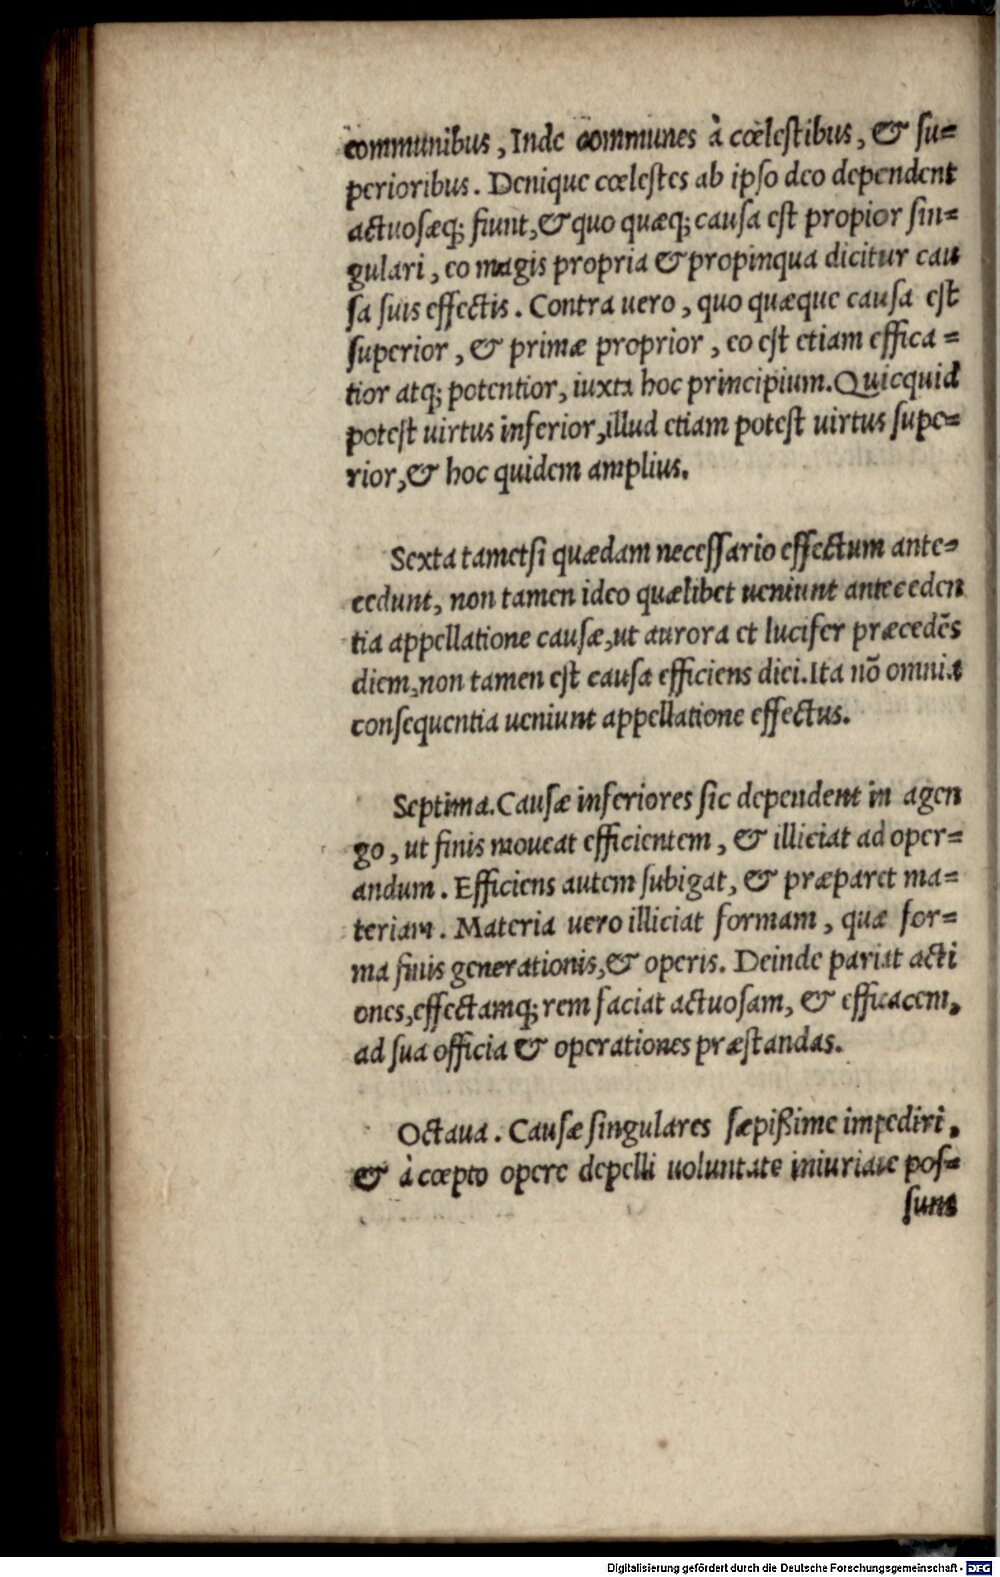 communibus, Inde communes à cœlestibus, & su=
perioribus. Denique cœlestes ab ipso deo dependent
actuosæq; fiunt, & quo quæq; causa est propior sin=
gulari, eo magis propria & propinqua dicitur cau
sa suis effectis. Contra uero, quo quæque causa est
superior, & primæ proprior, eo est etiam effica=
tior atq; potentior, iuxta hoc principium. Quicquid
potest uirtus inferior, illud etiam potest uirtus supe=
rior, & hoc quidem amplius.
Sexta tametsi quædam necessario effectum ante=
cedunt, non tamen ideo quælibet ueniunt anteceden
tia appellatione causæ, ut aurora et lucifer præcedẽs
diem, non tamen est causa efficiens diei. Ita nõ omnia
consequentia ueniunt appellatione effectus.
Septima. Causæ inferiores sic dependent in agen
go, ut finis moueat efficientem, & illiciat ad oper=
andum. Efficiens autem subigat, & præparet ma=
teriam. Materia uero illiciat formam, quæ for=
ma finis generationis, & operis. Deinde pariat acti
ones, effectamq; rem faciat actuosam, & efficacem,
ad sua officia & operationes præstandas.
Octaua. Causæ singulares sæpißime impediri,
& à cœpto opere depelli uoluntate iniuriaue pos=
sunt
Digitalisierung gefördert durch die Deutsche Forschungsgemeinschaft - DFG